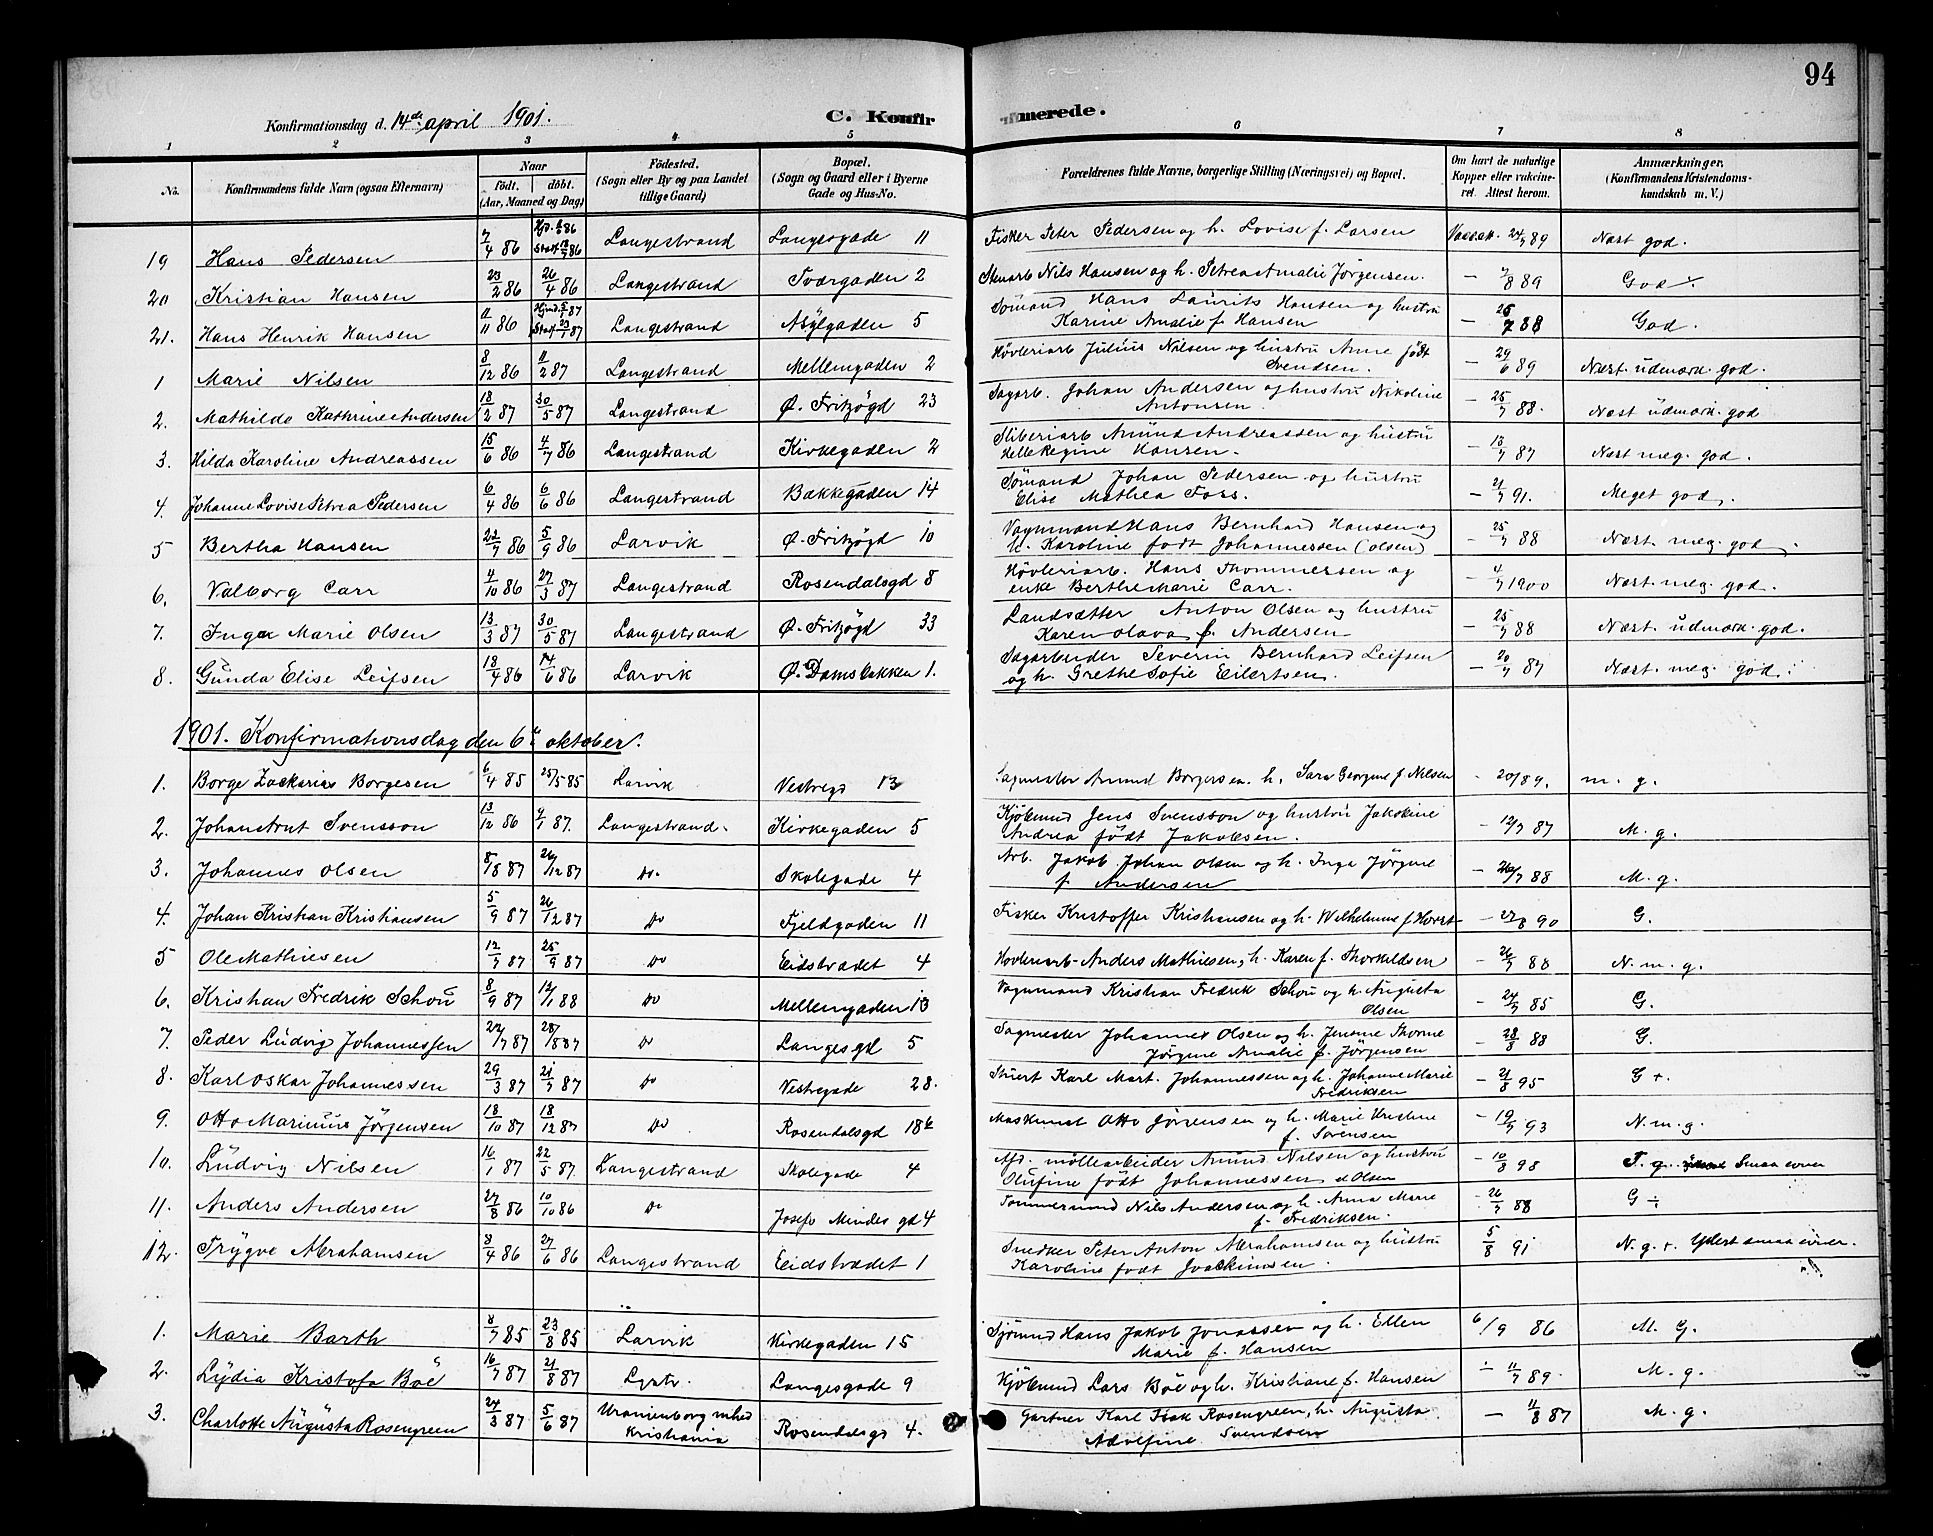 94
Konfirmationsdag d. 14de april 1901. C. Konfirmerede.
1 2 3 4 5 6 7 8
No. Konfirmandens fulde Navn (ogsaa Efternavn) Naar født. døbt. (Aar, Maaned og Dag) Fødested. (Sogn eller By og paa Landet tillige Gaard) Bopæl. (Sogn og Gaard eller i Byerne Gade og Hus-No. Forældrenes fulde Navne, borgerlige Stilling (Næringsvei) og Bopæl. Om havt de naturlige Kopper eller vakcineret. Attest herom. Anmærkninger. (Konfirmandens Kristendomskundskab m. V.)
19 Hans Pedersen 7/4 86 Langestrand Langesgade 11 Fisker Peter Pedersen og h. Lovise f. Larsen 24/7 89 Næst god.
20 Kristian Hansen 23/2 86 26/4 86 Langestrand Tværgaden 2 Stenarb Nils Hansen og h. Petrea Amalie Jørgensen. - 7/8 89 God
21. Hans Henrik Hansen 11/11 86 Langestrand Asylgaden 5 Sømand Hans Laurits Hansen og hustru
Karine Amalie f. Hansen - 25/7 88 God.
1 Marie Nilsen 8/12 86 11/2 87 Langestrand Mellemgaden 2 Høvleriarb Julius Nilsen og hustru Anne født
Svendsen. - 29/6 89 Næst. udmærk. god.
2. Mathilde Kathrine Andersen 18/2 87 30/5 87 Langestrand Ø. Fritzøgd 23 Sagarb. Johan Andersen og hustru Nikoline
Antonsen. - 25/7 88. Næst udmærk. god
3. Hilda Karoline Andreassen 15/6 86 4/7 86 Langestrand Kirkegaden 2 Sliberiarb Amund Andreassen og hustru
Helle Regine Hansen. - 18/7 87 Næst meg. god.
4. Johanne Lovise Petrea Pedersen 6/4 86 6/6 86 Langestrand Bækkegaden 14 Sømand Johan Pedersen og hustru
Elise Mathea Foss. - 21/7 91. Meget god.
5 Bertha Hansen 22/7 86 5/9 86 Larvik Ø. Fritzøgd 10 Vognmand Hans Bernhard Hansen og
h. Karoline født Johannessen (Olsen) - 25/7 88 Næst. meg. god.
6. Valborg Carr 4/10 86 27/3 87 Langestrand Rosendalsgd 8 Høvleriarb. Hans Thommersen og
enke Berthe Marie Carr. - 4/7 1900 Næst. meg. god.
7. Inga Marie Olsen 13/3 87 30/5 87 Langestrand Ø. Fritzøgd 33 Landsætter Anton Olsen og hustru
Karen Olava f. Andersen - 25/7 88 Næst. udmærk. god.
8. Gunda Elise Leifsen 18/4 86 14/6 86 Larvik Ø. Damsbakken 1. Sagarbeider Severin Bernhard Leifsen
og h. Grethe Sofie Eilertsen. - 20/7 87 Næst. meg. god.
1901. Konfirmationsdag den 6te oktober.
1. Borge Zackarias Borgesen 6/4 85 25/5 85 Larvik Vestregd 13 Sagmester Amund Borgersen. h. Sara Georgine f Nilsen m. g.
2. Johan Svensson 13/12 86 87. Langestrand. Kirkegaden 5 Kjøbmd Jens Svensson og hustru Jakobine
Andrea født Jakobsen. - 12/7 87 M. g.
3. Johannes Olsen 8/8 87 26/12 87 Do. Skolegade 4 Arb. Jakob Johan Olsen og h. Inga Jørgine
f. Andersen - 26/7 88 M. g.
4. Johan Kristian Kristiansen 5/9 87 26/12 87 Do Fjeldgaden 11 Fisker Kristoffer Kristiansen og h. Wilhelmine f. - 22/8 90 G.
5 Ole Mathiesen 12/7 87 25/9 87 Do Eidstrædet 4 Høvleriarb. Anders Mathiesen, h. Karen f. Thorkildsen - 26/7 88 N. m. g.
6. Kristian Fredrik Schou 8/9 87 12/1 88 Do Mellemgaden 13 Vognmand Kristian Fredrik Schou og h. Augusta
Olsen - 24/7 85 G.
7. Peder Ludvig Johannessen 22/7 87 28/8 87 Do Langesgd 5 Sagmester Johannes Olsen og h. Jensine Thorine
Jørgine Amalie f. Jørgensen - 28/8 88 G.
8. Karl Oskar Johannessen 29/3 87 21/7 87 Do Vestregade 28. Stuert Karl Mart. Johannessen og h. Johanne Marie
Fredriksen - 21/8 95 G +.
9. Otto Marinius Jørgensen 18/10 87 18/12 87 Do Rosendalsgd 18b Maskinist Otto Jørgensen og h. Marie Kristine
f. Sørensen - 19/7 93 N. m. g.
10. Ludvig Nilsen 16/1 87 22/5 87. Langestrand Skolegade 4 Afd. møllearbeider Amund Nilsen og hustru
Olufine født Johannessen Olsen - 10/8 98 T. g. Smaa evner
11. Anders Andersen 27/8 86 10/10 86 Do Josefs Mindes gd 4 Tømmermd Nils Andersen og h. Anna Marie
f. Fredriksen. - 26/7 88 G ÷
12. Trygve Abrahamsen 8/4 86 27/6 86 Langestrand Eidstrædet 1 Snedker Peter Anton Abrahamsen og hustru
Karoline født Joackimsen. 5/8 91 N. g. +. Yderst smaa evner.
1. Marie Barth 8/7 85 23/8 85 Larvik Kirkegaden 15 Hans Jakob Jonassen og h. Ellen
Marie f. Hansen 6/9 86 M. G.
2. Lydia Kristofa Bøe 16/7 87 21/8 87 Lgstr. Langesgade 9 Kjøbmd Lars Bøe og h. Kristiane f. Hansen ÷ 11/7 89. M. g.
3. Charlotte Augusta Rosengreen 24/3 87 5/6 87 Uranienborg mhed
Kristiania Rosendalsgd 4. Gartner Karl Isak Rosengreen, h. Augusta
Adolfine Svendsen - 11/8 87 M. g.